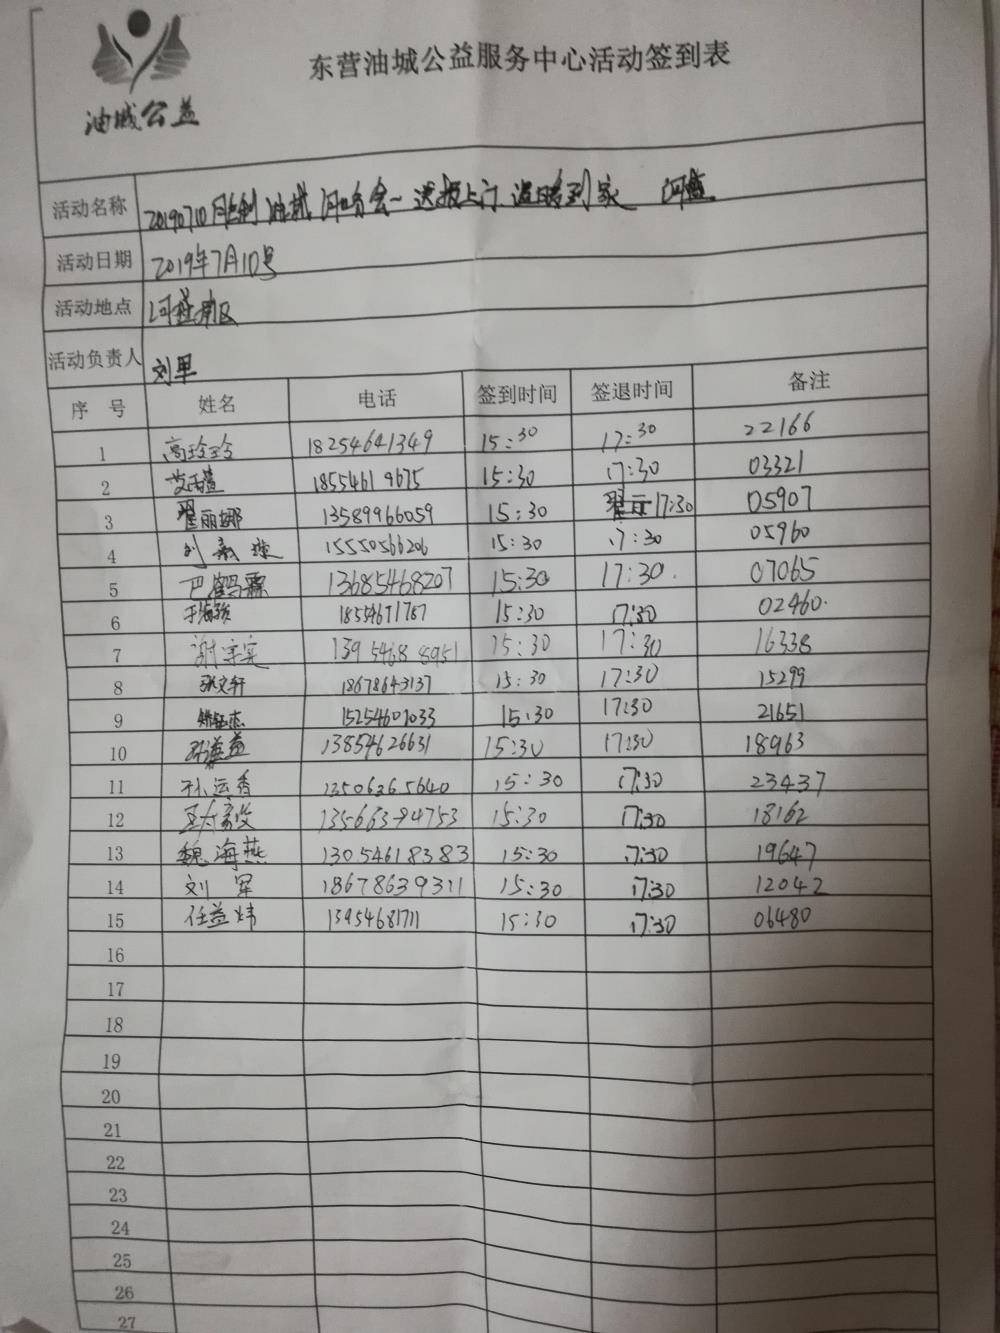 油城公益
东营油城公益服务中心活动签到表
活动名称 20190710 胜利油城 送报上门 送 到家 河盛
活动日期 2019年7月10号
活动地点 河盛南区
活动负责人 刘军
序号 姓名 电话 签到时间 签退时间 备注
1 高玲玲 18254641349 15:30 17:30 22166
2 18554619675 15:30 17:30 03321
3 翟丽娜 13589966059 15:30 17:30 05907
4 刘 15550566206 15:30 17:30 05960
5 巴鹤霖 13685468207 15:30 17:30 07065
6 18554671787 15:30 17:30 02460
7 谢宗奕 13954688951 15:30 17:30 16338
8 张文轩 18678643137 15:30 17:30 15299
9 15254607033 15:30 17:30 21651
10 13854626631 15:30 17:30 18963
11 孙运香 13506365640 15:30 17:30 23437
12 13566394753 15:30 17:30 18162
13 魏海燕 13054618383 15:30 17:30 19647
14 刘军 18678639311 15:30 17:30 12042
15 任益炜 13954681711 15:30 17:30 06480
16
17
18
19
20
21
22
23
24
25
26
27